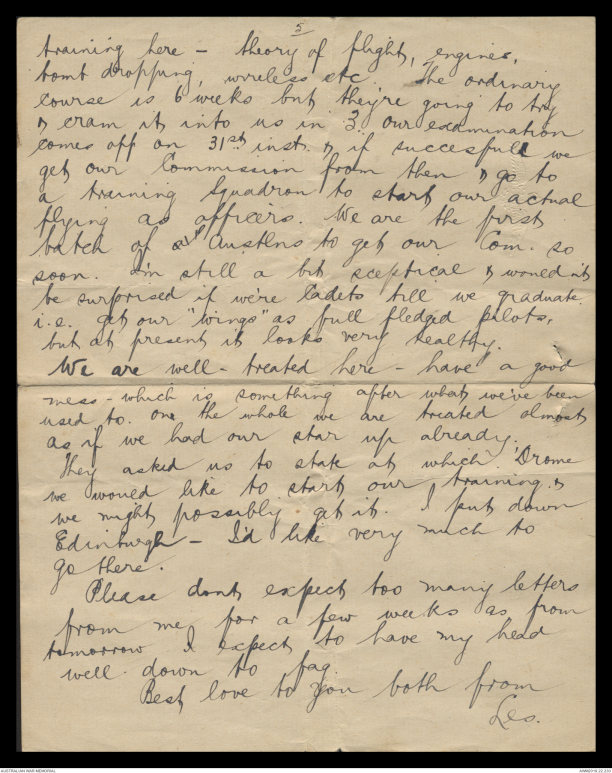 5
training here - theory of flight, engines,
bomb dropping, wireless etc. The ordinary
course is 6 weeks but they're going to try
& cram it into us in 3. our examination
comes off on 31st inst. & if succesfull we
get our Commission from then & go to
a training Squadron to start our actual
flying as officers. We are the first
batch of all Austlns to get our Com. so
soon. I'm still a bit sceptical & would nt
be surprised if we're Cadets till we graduate.
i.e. get our "wings" as full fledged pilots,
but at present it looks very healthy.
We are well-treated here - have a good
mess - which is something after what we've been
used to. one the whole we are treated almost
as if we had our star up already.
They asked us to state at which 'Drome
we would like to start our training, &
we might possibly get it. I put down
Edinburgh - I'd like very much to
go there.
Please dont expect too many letters
from me for a few weeks as from
tomorrow I expect to have my head
well down to fag.
Best love to you both from
Les.
AUSTRALIAN WAR MEMORIAL